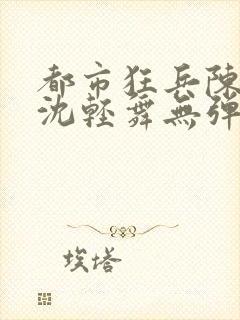 都市狂兵陳
沈輕舞無彈
埃塔